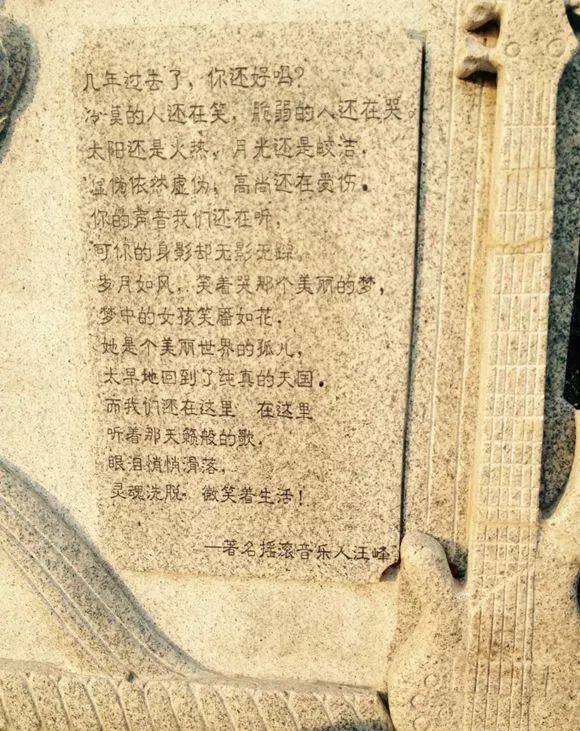 几年过去了，你还好吗？
冷莫的人还在笑，脆弱的人还在哭。
太阳还是火热，月光还是皎洁，
虚伪依然虚伪，高尚还在受伤。
你的声音我们还在听，
可你的身影却无影无踪。
岁月如风，笑着哭那个美丽的梦，
梦中的女孩笑靥如花，
她是个美丽世界的孤儿，
太早地回到了纯真的天国。
而我们还在这里 在这里
听着那天籁般的歌，
眼泪悄悄滑落，
灵魂洗脱，微笑着生活！
—著名摇滚音乐人汪峰